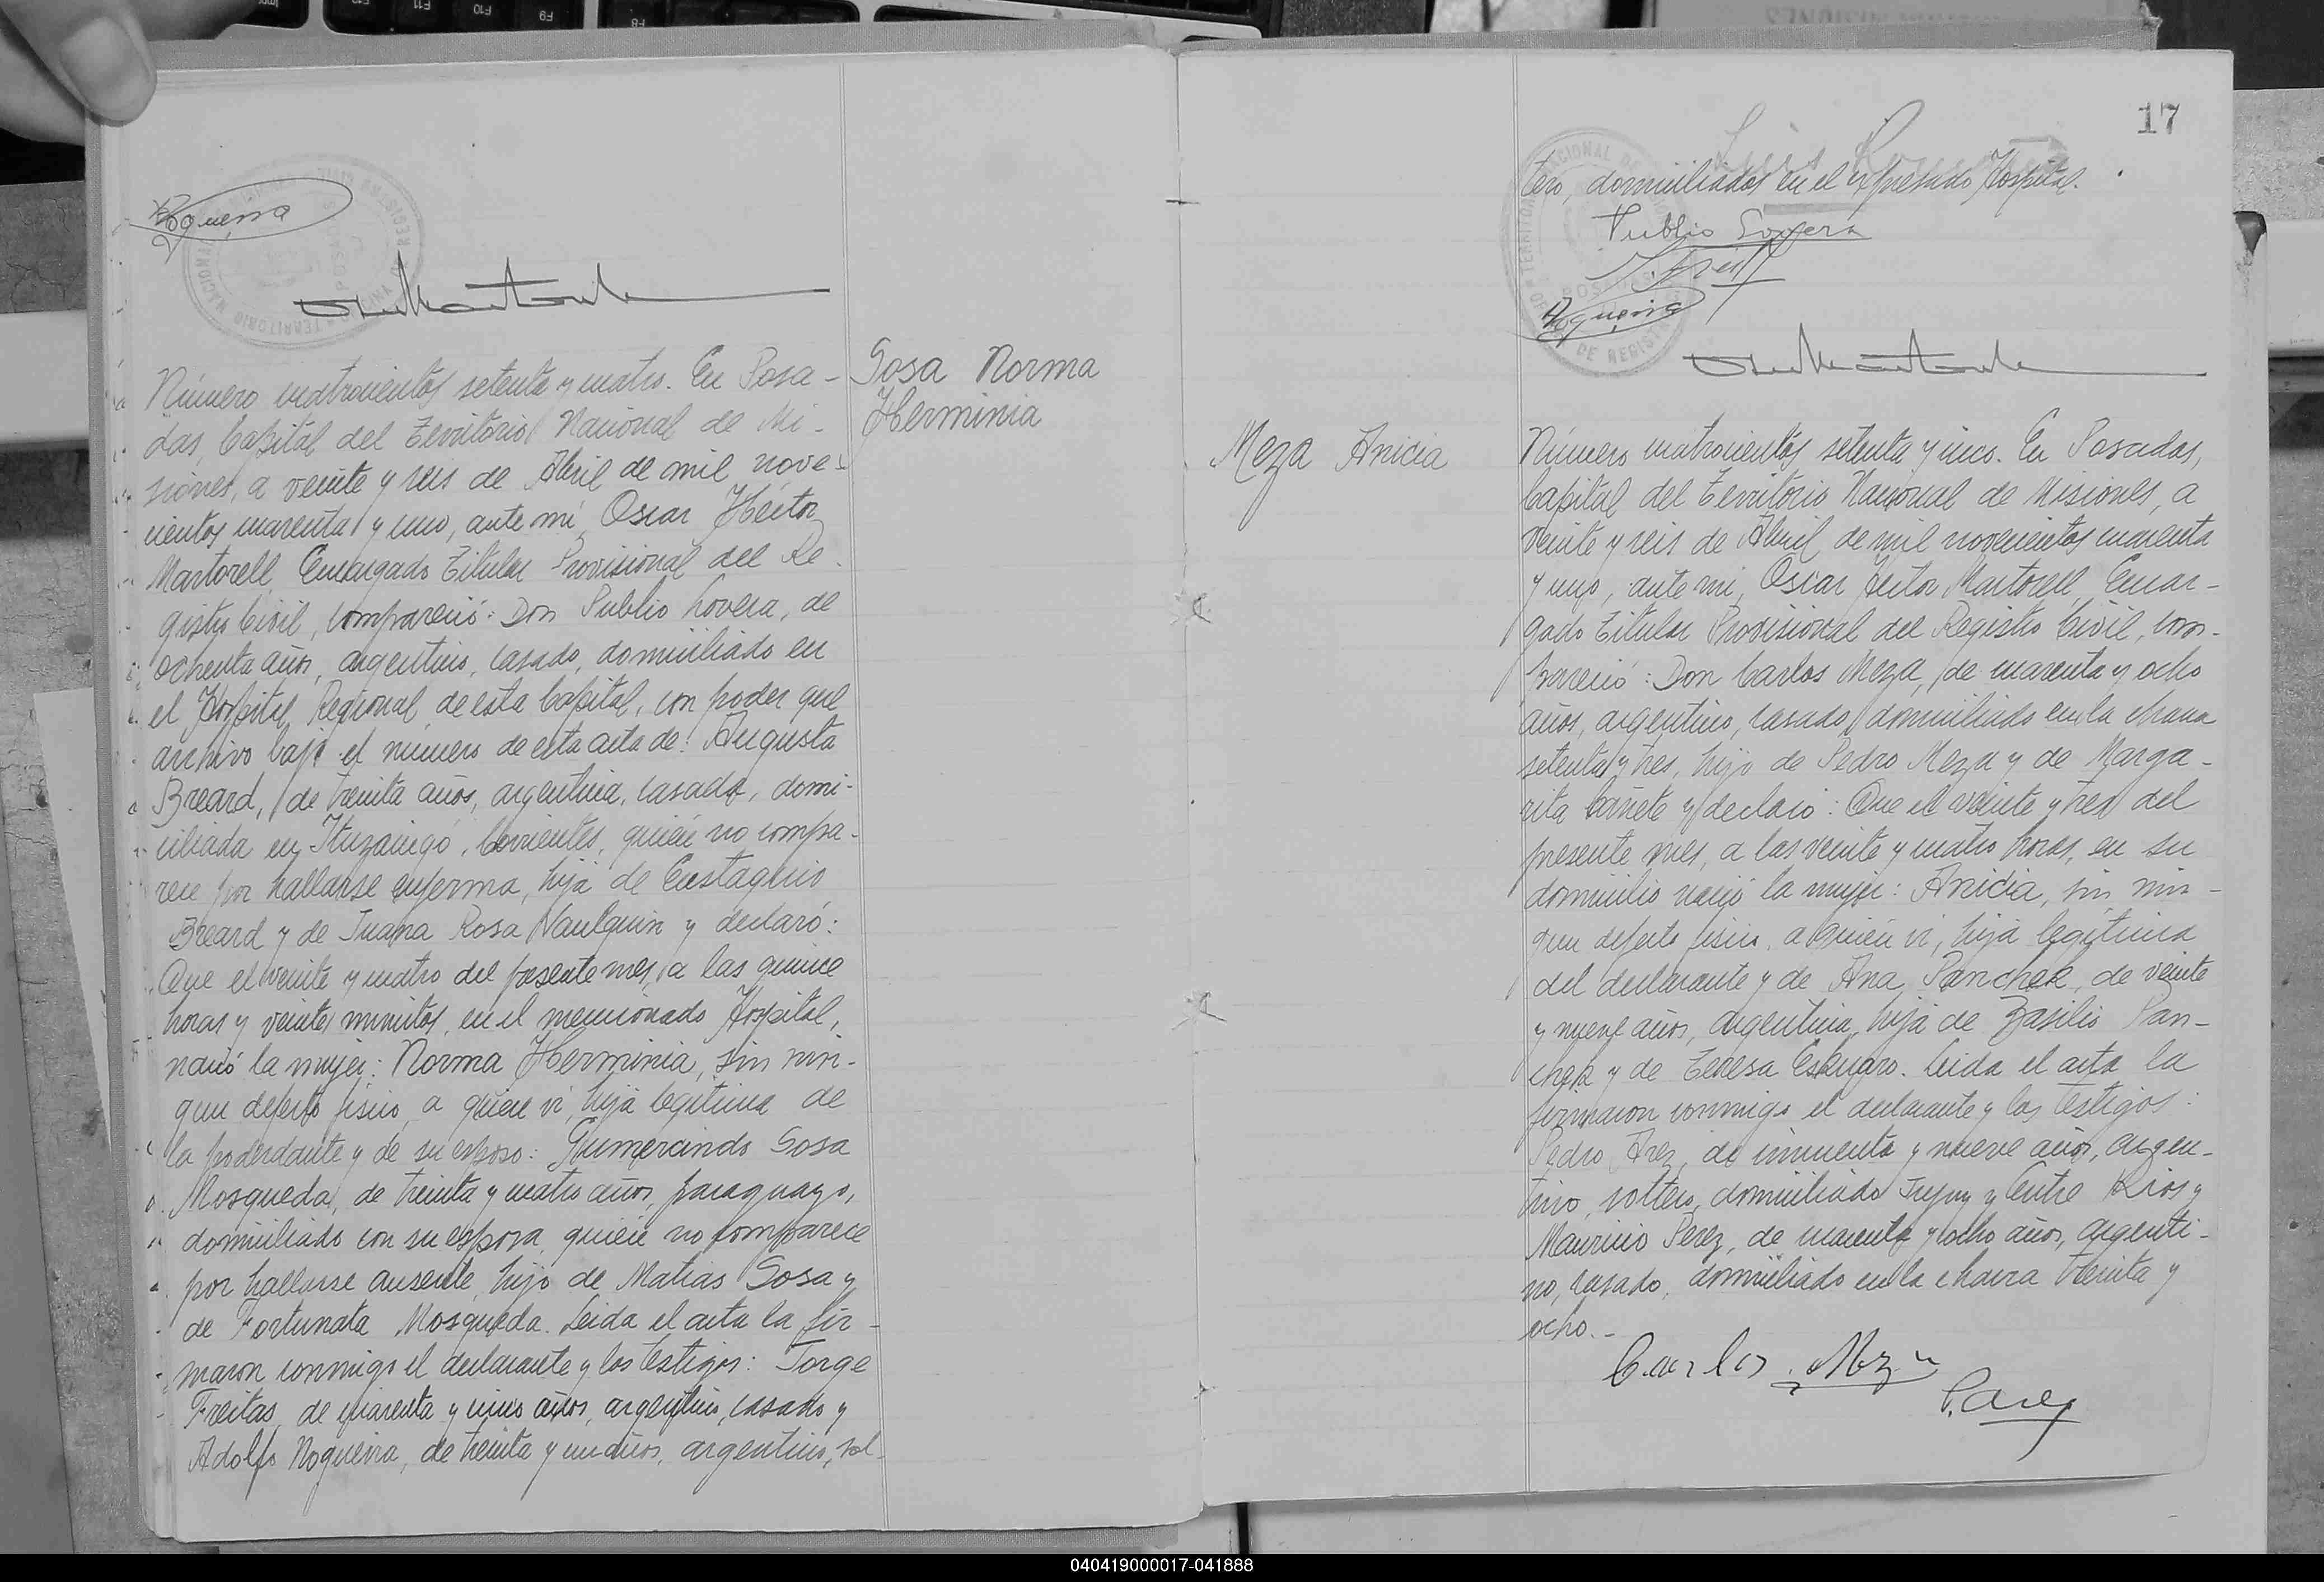 Nogueira
Número cuatrocientos setenta y cuatro. En Posa-
das, Capital del Territorio Nacional de Mi-
siones, a veinte y seis de Abril de mil nove-
cientos cuarenta y uno, ante mí, Oscar Héctor
Martorell, Encargado Titular Provisional del Re-
gistro Civil, compareció: Don Publio Lovera, de
ochenta años, argentino, casado, domiciliado en
el Hospital Regional de esta Capital, con poder que
archivo bajo el número de esta acta de: Augusta
Breard, de treinta años, argentina, casada, domi-
ciliada en Ituzaingó, Corrientes, quién no compa-
rece por hallarse enferma, hija de Eustaquio
Breard y de Juana Rosa Vaulquin y declaró:
Que el veinte y cuatro del presente mes, a las quince
horas y veinte minutos, en el mencionado Hospital,
nació la mujer: Norma Herminia, sin nin-
gun defecto físico, a quién ví, hija legítima de
la poderdante y de su esposo: Gumercindo Sosa
Mosqueda, de treinta y cuatro años, paraguayo,
domiciliado con su esposa, quién no comparece
por hallarse ausente, hijo de Matías Sosa y
de Fortunata Mosqueda. Leida el acta la fir-
maron conmigo el declarante y los testigos: Jorge
Freitas, de cuarenta y cinco años, argentino, casado y
Adolfo Nogueira, de treinta y un años, argentino, sol-
Sosa Norma
Herminia
17
tero, domiciliados en el expresado Hospital.
Publio Lovera
Nogueira
Meza Anicia
Número cuatrocientos setenta y cinco. En Posadas,
Capital del Territorio Nacional de Misiones, a
veinte y seis de Abril de mil novecientos cuarenta
y uno, ante mi, Oscar Héctor Martorell, Encar-
gado Titular Provisional del Registro Civil, com-
pareció: Don Carlos Meza, de cuarenta y ocho
años, argentino, casado, domiciliado en la chacra
setenta y tres, hijo de Pedro Meza y de Marga-
rita Cañete y declaró: Que el veinte y tres del
presente mes, a las veinte y cuatro horas, en su
domicilio nació la mujer: Anicia, sin nin-
gun defecto físico, a quién ví, hija legítima
del declarante y de Ana Panchek, de veinte
y nueve años, argentina, hija de Basilio Pan-
chek y de Teresa Eskugro. Leida el acta la
firmaron conmigo el declarante y los testigos:
Pedro Arez, de cincuenta y nueve años, argen-
tino, soltero, domiciliado Jujuy y Entre Rios y
Mauricio Perez, de cuarenta y ocho años, argenti-
no, casado, domiciliado en la chacra treinta y
ocho.-
Carlos Meza
P. Arez
040419000017-041888